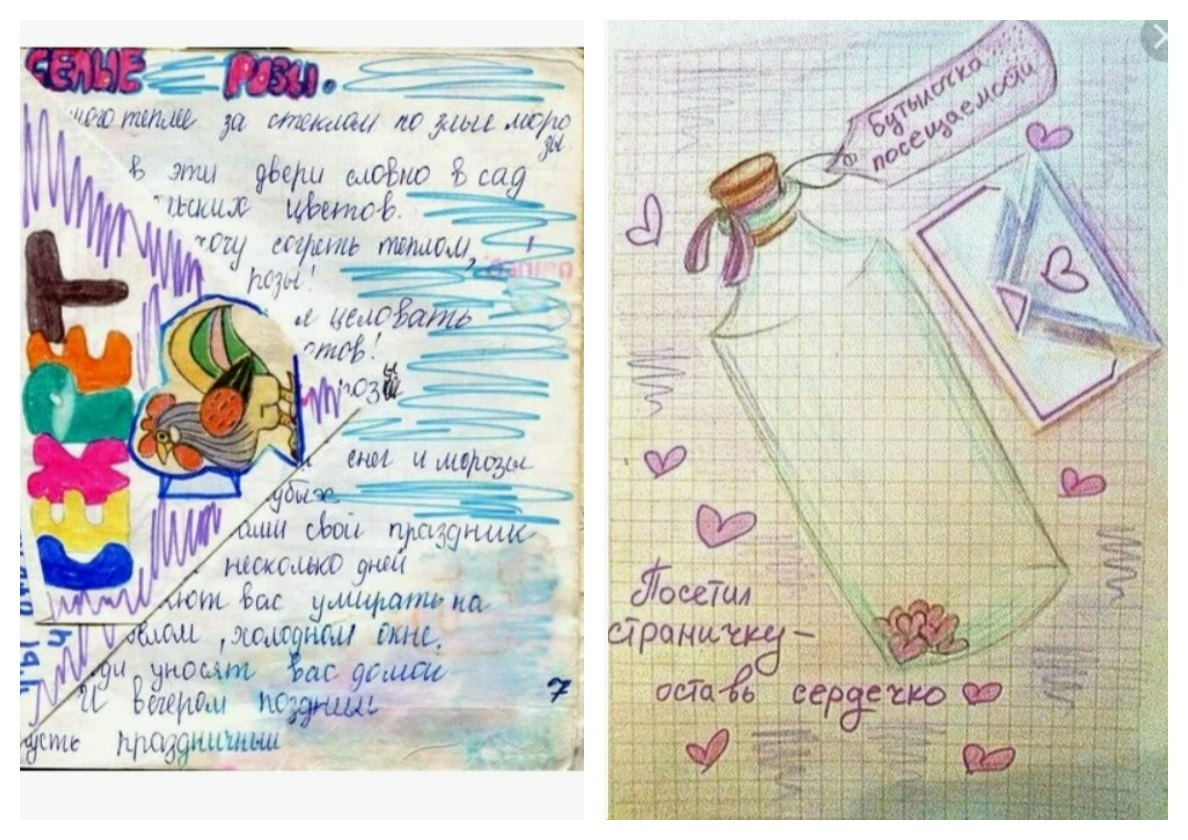 БЕЛЫЕ РОЗЫ.
ного теплее за стеклом но злые моро
зы
в эти двери словно в сад
ьских цветов.
хочу согреть теплом,
розы!
целовать
отов!
розы
снег и морозы
убых
ами свой праздник
несколько дней
яют вас умирать на
белом, холодном окне.
ди уносят вас домой
И вечером поздним
усть праздничный
7
СЕКРЕТ
Бутылочка
посещаемости
Посетил
страничку –
оставь сердечко